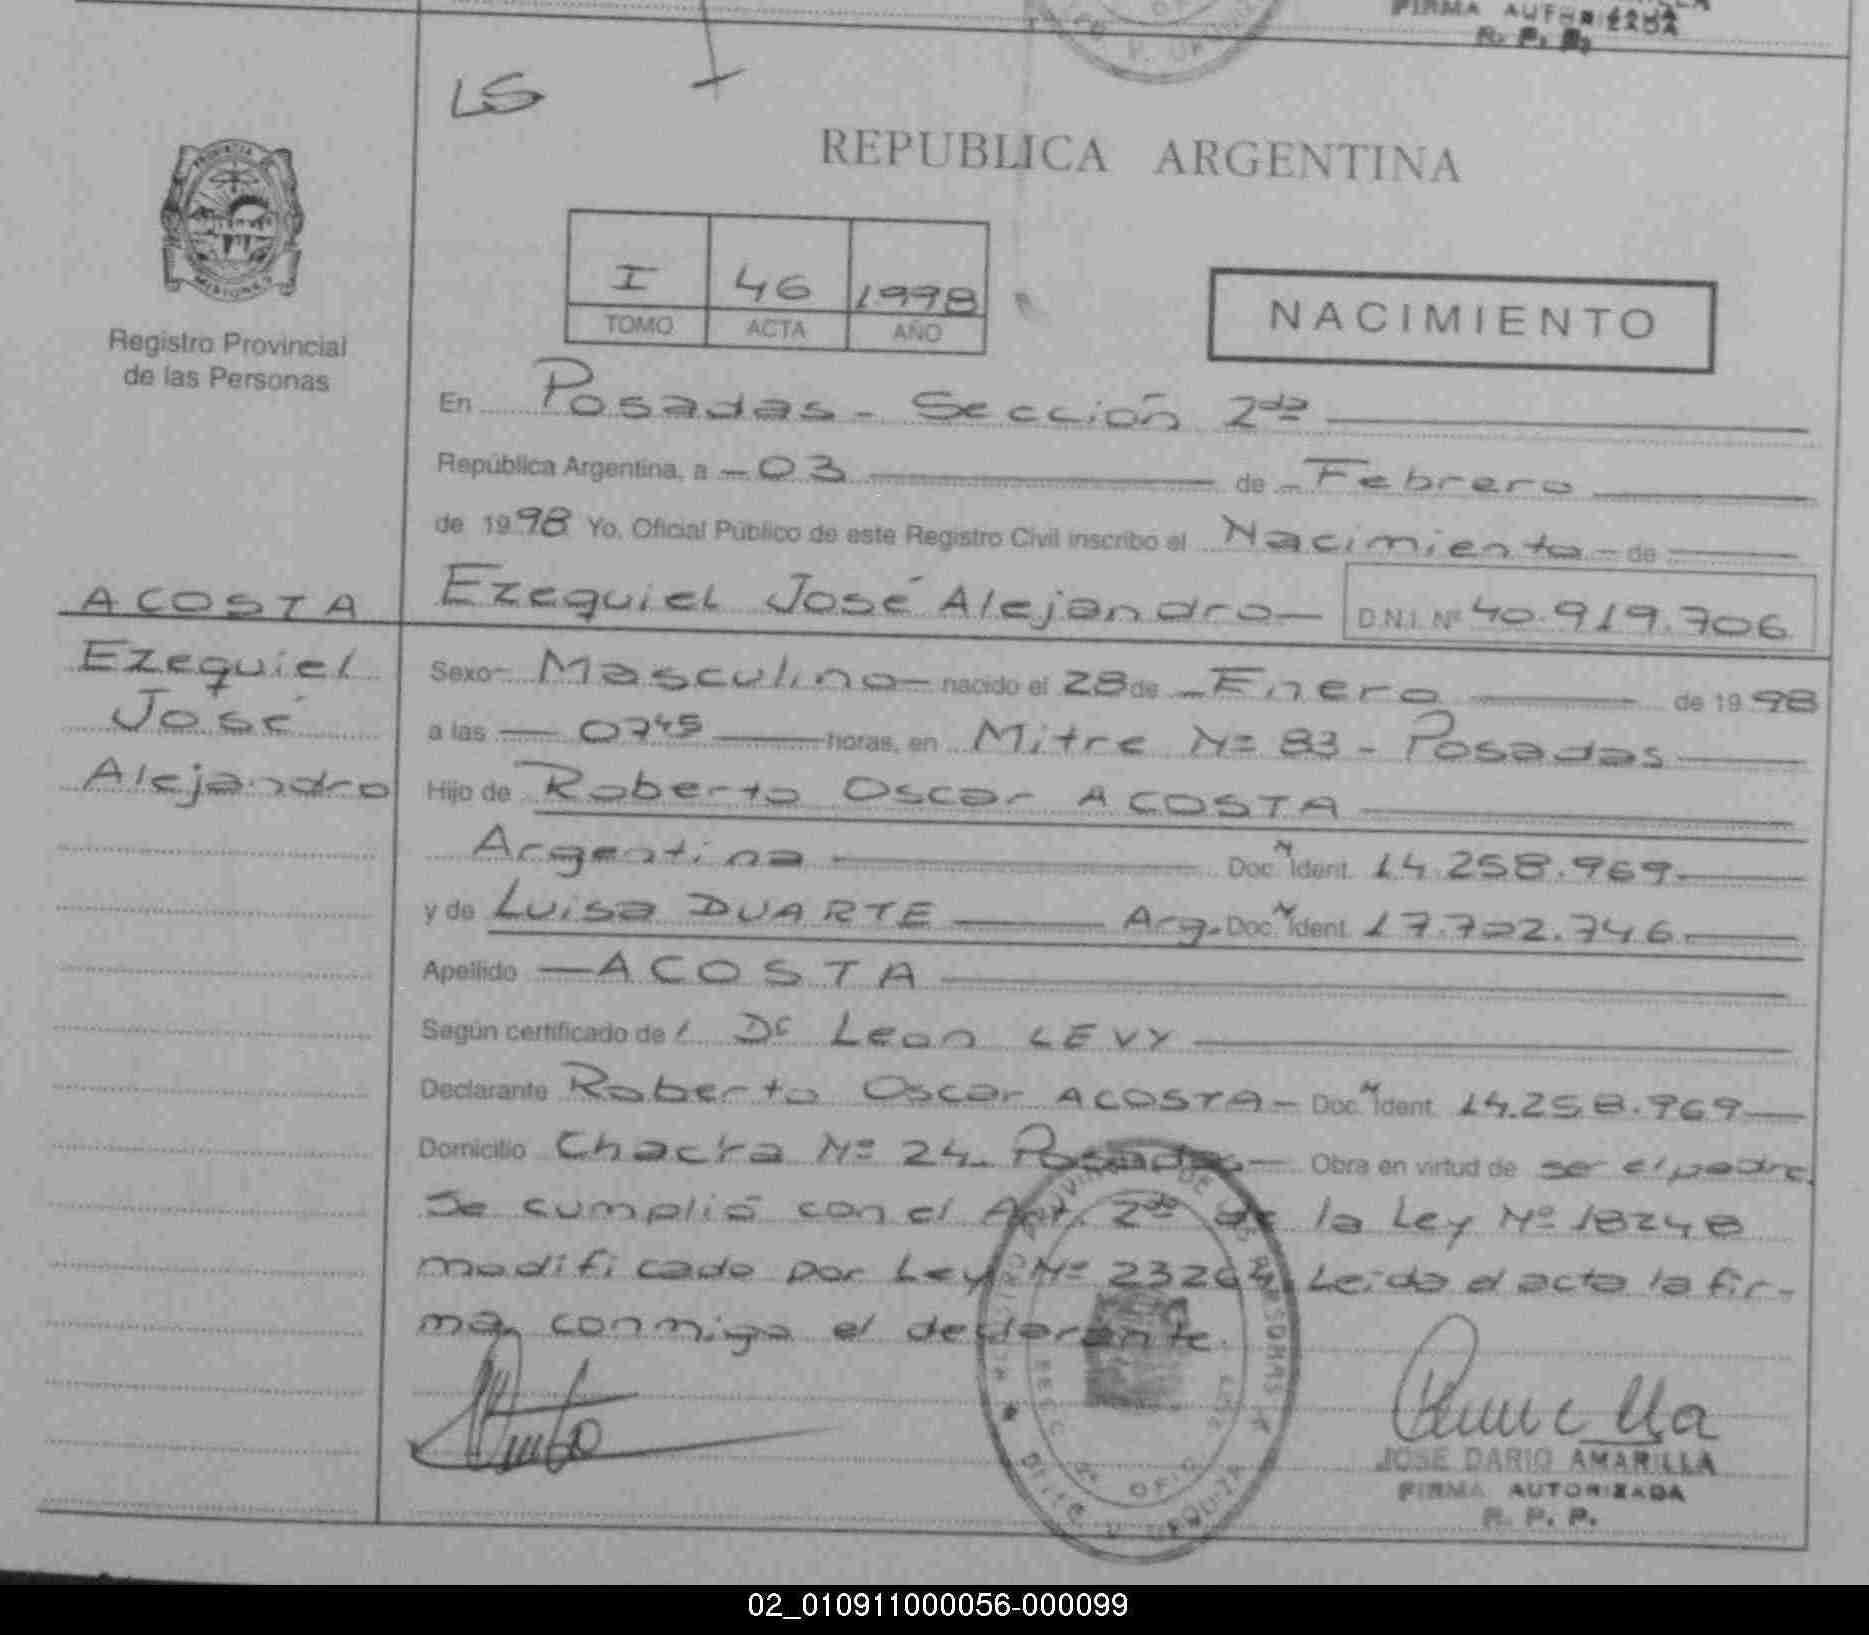 FIRMA AUTORIZADA
R. P. P.
LS
REPUBLICA ARGENTINA
I 46 1998
TOMO ACTA AÑO
NACIMIENTO
MISIONES
Registro Provincial
de las Personas
En Posadas - Sección 2da
República Argentina, a - 03 de - Febrero
de 1998 Yo, Oficial Público de este Registro Civil inscribo el Nacimiento - de
ACOSTA
Ezequiel
José
Alejandro
Ezequiel José Alejandro - D.N.I. Nº 40.919.706
Sexo - Masculino - nacido el 28 de - Enero de 1998
a las - 0745 horas, en Mitre Nº 83 - Posadas
Hijo de Roberto Oscar ACOSTA
Argentina Doc. N Ident. 14.258.969
y de Luisa DUARTE Arg. Doc. N Ident. 17.702.746
Apellido - ACOSTA
Según certificado de / Dr Leon LEVY
Declarante Roberto Oscar ACOSTA - Doc. N Ident. 14.258.969
Domicilio Chacra Nº 24. Posadas - Obra en virtud de ser el padre.
Se cumplió con el Art. 2do de la Ley Nº 18248
modificado por Ley Nº 23264. Leida el acta la fir-
ma, conmigo el declarante.
JOSE DARIO AMARILLA
FIRMA AUTORIZADA
R. P. P.
02_010911000056-000099